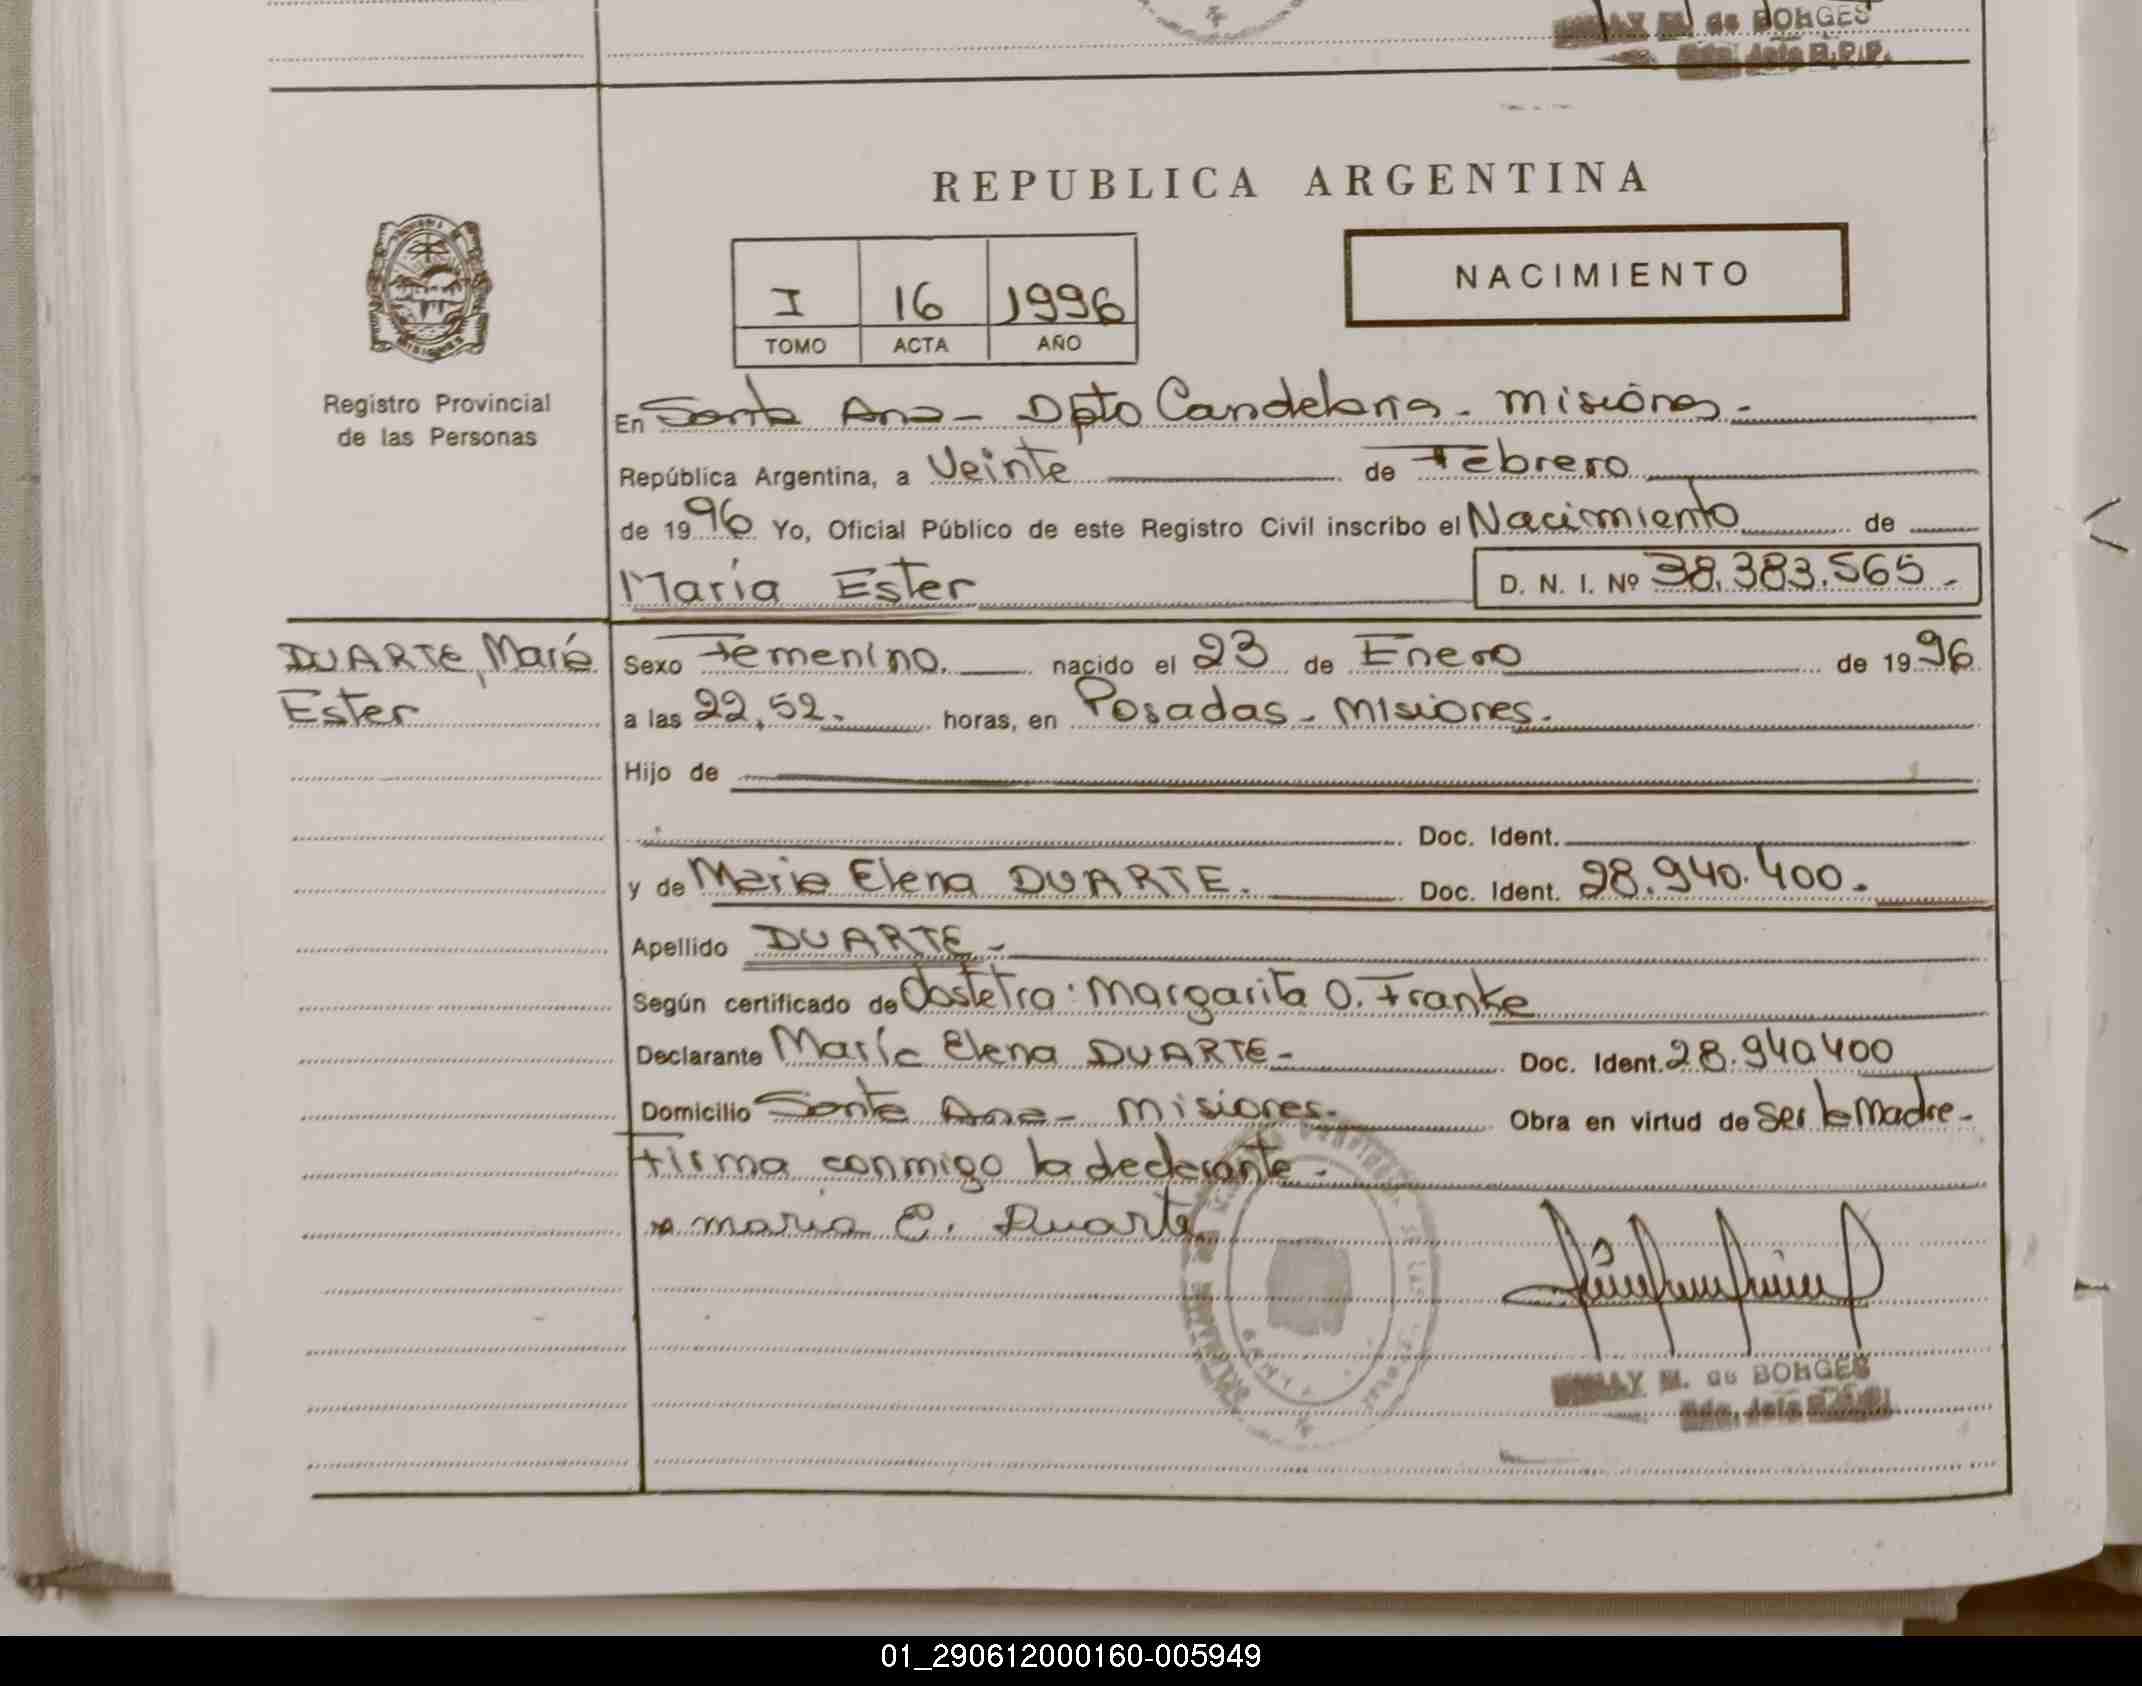 M. de BORGES
REPUBLICA ARGENTINA
NACIMIENTO
I 16 1996
TOMO ACTA AÑO
MISIONES
Registro Provincial
de las Personas
En Santa Ana - Dpto Candelaria - Misiones -
República Argentina, a Veinte de Febrero
de 1996 Yo, Oficial Público de este Registro Civil inscribo el Nacimiento de
María Ester D. N. I. Nº 38.383.565 -
DUARTE, María
Ester
Sexo Femenino. nacido el 23 de Enero de 1996
a las 22,52 - horas, en Posadas - Misiones -
Hijo de
Doc. Ident.
y de Maria Elena DUARTE. Doc. Ident. 28.940.400.
Apellido DUARTE -
Según certificado de Obstetra: Margarita O. Franke
Declarante María Elena DUARTE - Doc. Ident. 28.940400
Domicilio Santa Ana - Misiones - Obra en virtud de ser la Madre -
Firma conmigo la declarante -
maria E. Duarte
M. de BORGES
01_290612000160-005949